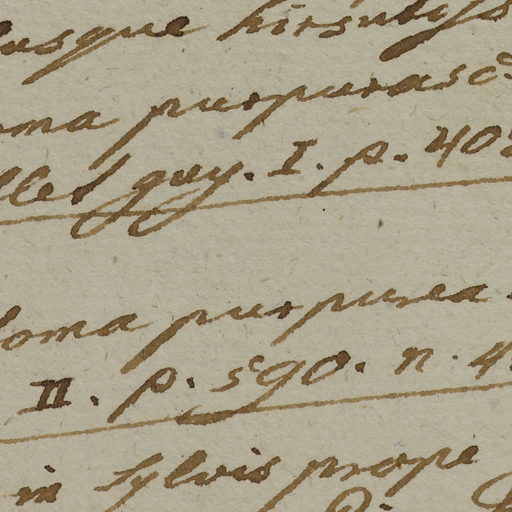 usque hirsutis
oma purpurasc
llet guy. I. p. 40
loma purpurea
II. p. 590. n. 4
in Sylvis prope